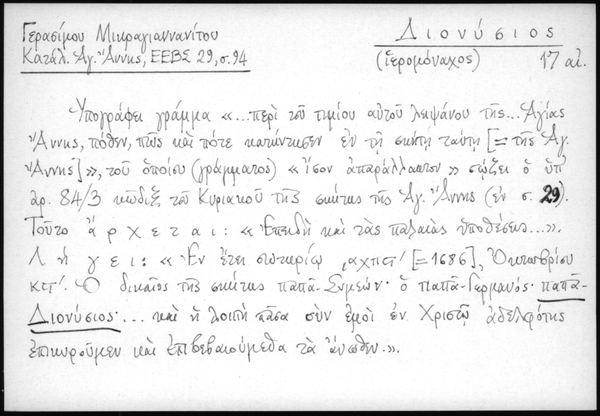 Γερασίμου Μικραγιαννανίτου
Κατάλ. Ἁγ. Ἄννης, ΕΕΒΣ 29, σ. 94
Διονύσιος
(ἱερομόναχος) 17 αἰ.
Ὑπογράφει γράμμα «...περὶ τοῦ τιμίου αὐτοῦ λειψάνου τῆς... Ἁγίας
Ἄννης, πόθεν, πῶς καὶ πότε κατήντησεν ἐν τῇ σκήτῃ ταύτῃ [= τῆς Ἁγ.
Ἄννης]», τοῦ ὁποίου (γράμματος) «Ἴσον ἀπαράλλακτον» σῴζει ὁ ὑπ'
ἀρ. 84/3 κῶδιξ τοῦ Κυριακοῦ τῆς σκήτης τῆς Ἁγ. Ἄννης (ἐν σ. 29).
Τοῦτο ἄρχεται: «Ἐπειδὴ καὶ τὰς παλαιὰς ὑποθέσεις...».
Λήγει: «Ἐν ἔτει σωτηρίῳ ͵αχπϛʹ [= 1686], Ὀκτωβρίου
κϛʹ. Ὁ δικαῖος τῆς σκήτης παπᾶ-Συμεών· ὁ παπᾶ-Γερμανός· παπᾶ-
Διονύσιος·... καὶ ἡ λοιπὴ πᾶσα σὺν ἐμοὶ ἐν Χριστῷ ἀδελφότης
ἐπικυροῦμεν καὶ ἐπιβεβαιούμεθα τὰ ἄνωθεν.».